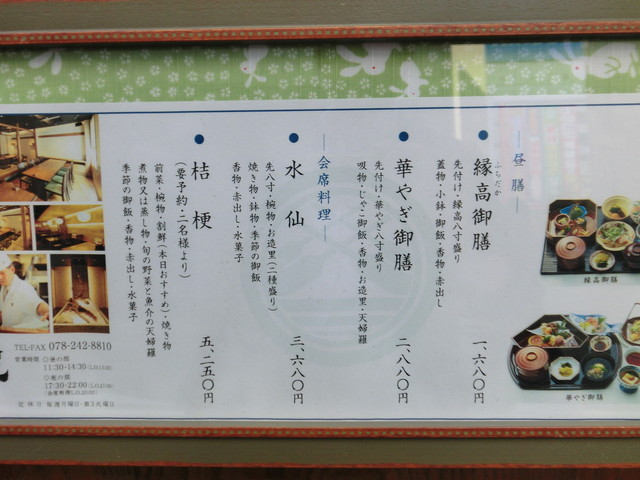 昼膳
縁高御膳
ふちだか
先付け・縁高八寸盛り
蓋物・小鉢・御飯・香物・赤出し
一、六八〇円
華やぎ御膳
先付け・華やぎ八寸盛り
吸物・じゃこ御飯・香物・お造里・天婦羅
二、八八〇円
会席料理
水仙
先八寸・椀物・お造里(二種盛り)
焼き物・鉢物・季節の御飯
香物・赤出し・水菓子
三、六八〇円
桔梗
(要予約・二名様より)
前菜・椀物・割鮮(本日おすすめ)・焼き物
煮物又は蒸し物・旬の野菜と魚介の天婦羅
季節の御飯・香物・赤出し・水菓子
五、二五〇円
縁高御膳
華やぎ御膳
TEL・FAX 078-242-8810
営業時間 ◎昼の部
11:30-14:30
◎夜の部
17:30-22:00
定休日 毎週月曜日・第3火曜日